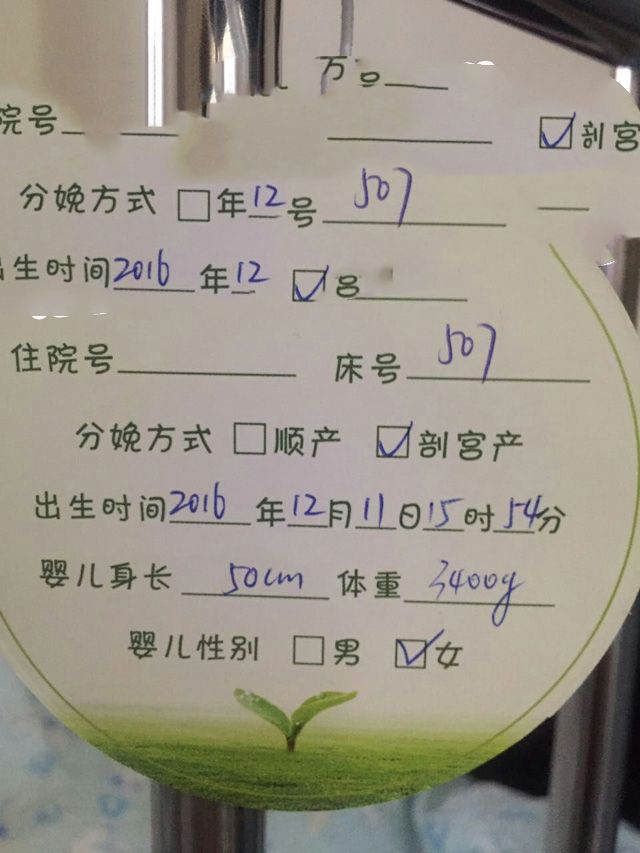 号
院号
☑剖宫
分娩方式 □年12号 507
出生时间2016年12 ☑
住院号 床号507
分娩方式 □顺产 ☑剖宫产
出生时间2016年12月11日15时54分
婴儿身长50cm 体重3400g
婴儿性别 □男 ☑女